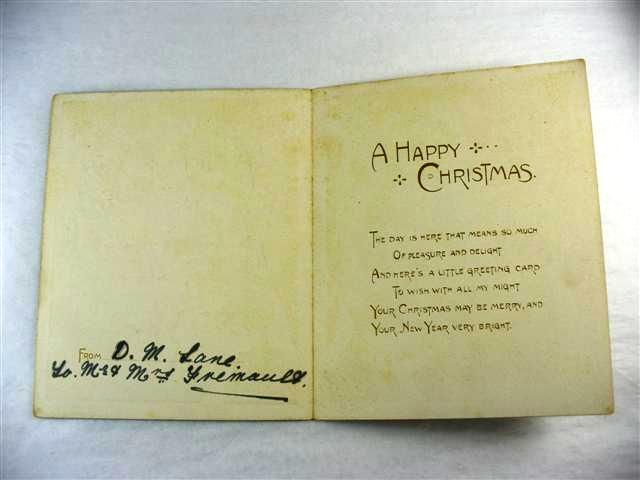 From D. M. Lane.
To. Mr & Mrs Fremault.
A Happy
Christmas.
The day is here that means so much
Of pleasure and delight
And here's a little greeting card
To wish with all my might
Your Christmas may be merry, and
Your New Year very bright.